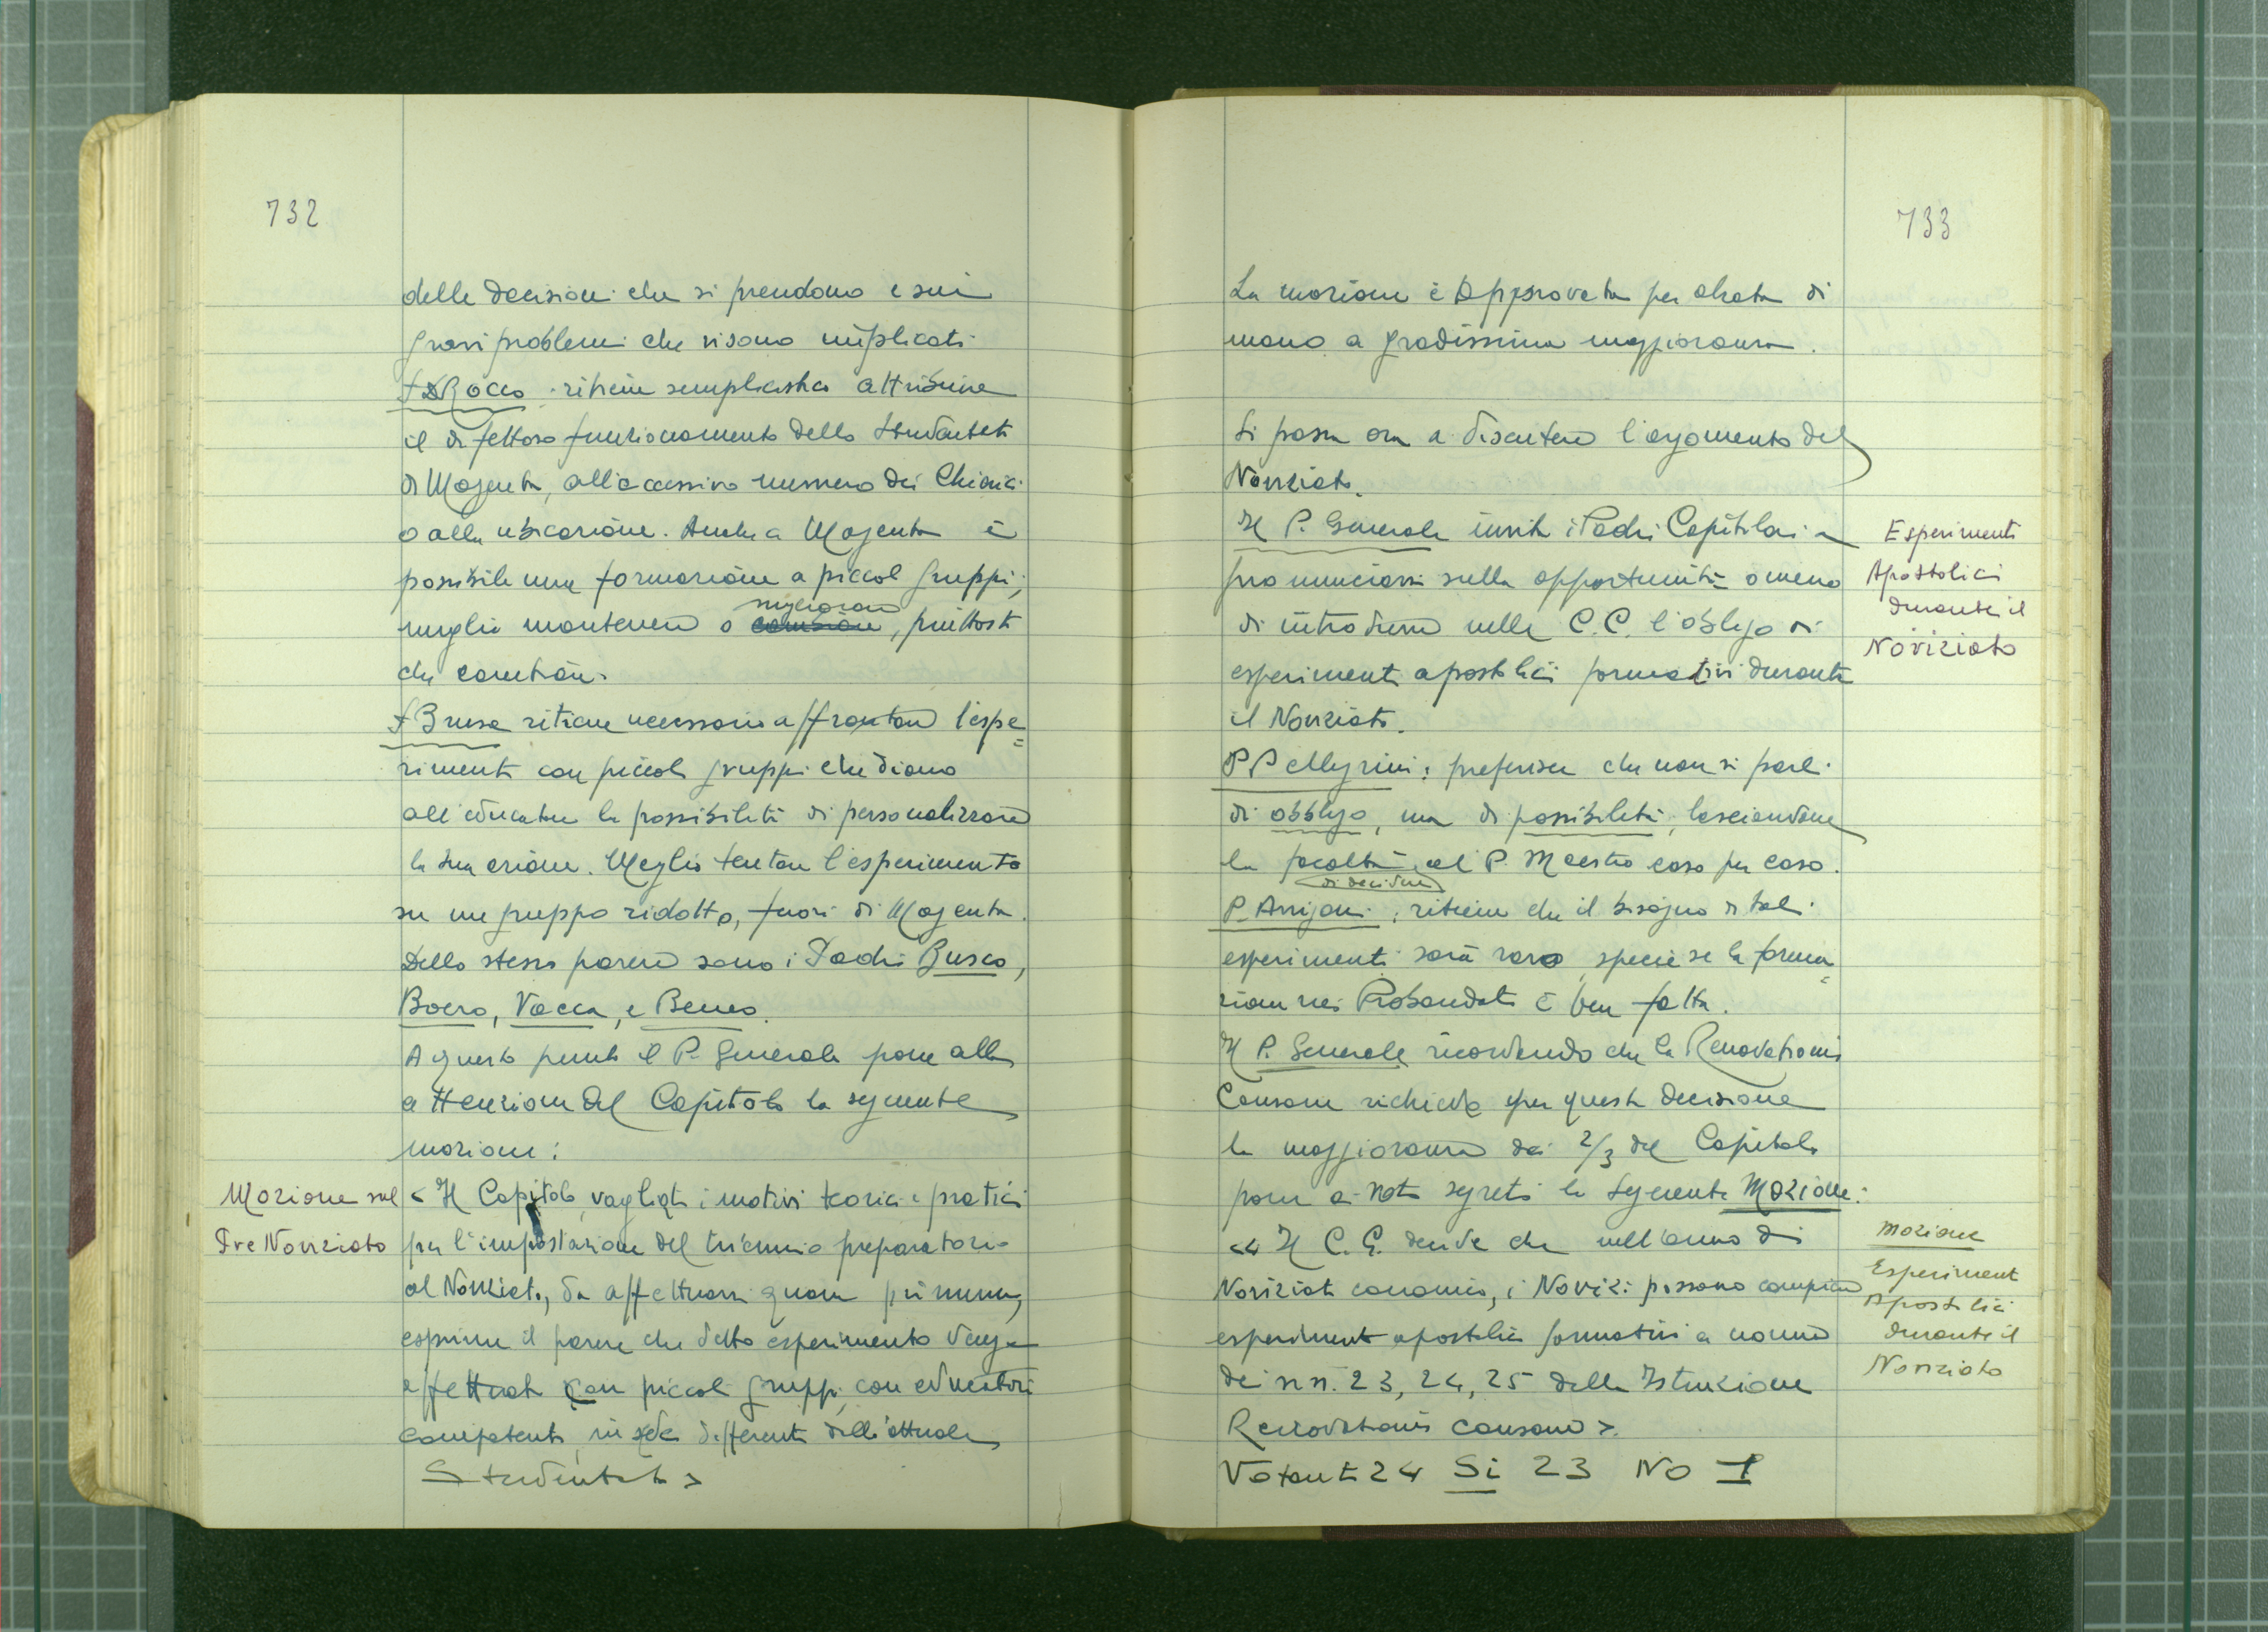 732
delle decisioni che si prendono e sui
gravi problemi che vi sono implicati
P. Rocco ritiene semplicistico attribuire
il difettoso funzionamento dello Studentato
di Magenta, all'eccessivo numero dei Chierici
o alla ubicazione. Anche a Magenta è
possibile una formazione a piccoli gruppi;
migliorare
meglio mantenere o , piuttosto
che cambiare.
P. Brusa ritiene necessario affrontare l'espe=
rimento con piccoli gruppi che diano
all'educatore la possibilità di personalizzare
la sua azione. Meglio tentare l'esperimento
su un gruppo ridotto, fuori di Magenta.
Dello stesso parere sono i Padri Busco,
Boero, Vacca, e
A questo punto il P. Generale pone alla
attenzione del Capitolo la seguente
mozione:
Mozione sul
Pre Noviziato
< Il Capitolo, vagliati i motivi teorici e pratici
per l'impostazione del triennio preparatorio
al Noviziato, da effettuarsi quam primum,
esprime il parere che detto esperimento venga
effettuato con piccoli gruppi, con educatori
competenti, in sede differente dall'attuale
Studentato >
733
La mozione è Approvata per alzata di
mano a gradissima maggioranza.
Si passa ora a discutere l'argomento del
Noviziato.
Il P. Generale invita i Padri Capitolari a
pronunciarsi sulla opportunità o meno
di introdurre nelle C.C. l'obbligo di
esperimenti apostolici formativi durante
il Noviziato.
Esperimenti
Apostolici
durante il
Noviziato
P. Pellegrini: preferisce che non si parli
di obbligo, ma di possibilità, lasciandone
la facoltà al P. Maestro caso per caso.
di decidere
P. Arrigoni: ritiene che il bisogno di tali
esperimenti sarà raro, specie se la forma=
zione nei Probandati è ben fatta.
Il P. Generale ricordando che la Renovationis
Causam richiede per questa decisione
la maggioranza dei 2/3 del Capitolo
pone ai voti segreti la seguente Mozione:
<< Il C. G. decide che nell'anno di
Noviziato canonico, i Novizi possano compiere
esperimenti apostolici formativi a norma
dei nn. 23, 24, 25 della Istruzione
Renovationis causam >.
Mozione
Esperimenti
Apostolici
durante il
Noviziato
Votanti 24 Si 23 No 1